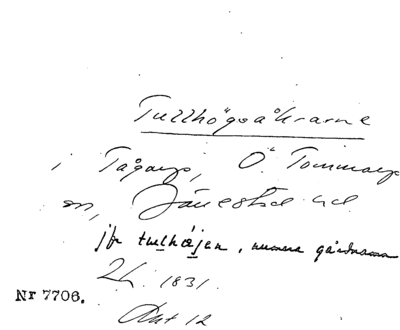 Tullhögsåkrarne
i Tågarp, Ö. Tommarps
sn, Järrestad hd.
jfr tullhöjen, numera gårdarna
Lh. 1831.
Nr 7706.
Akt 12